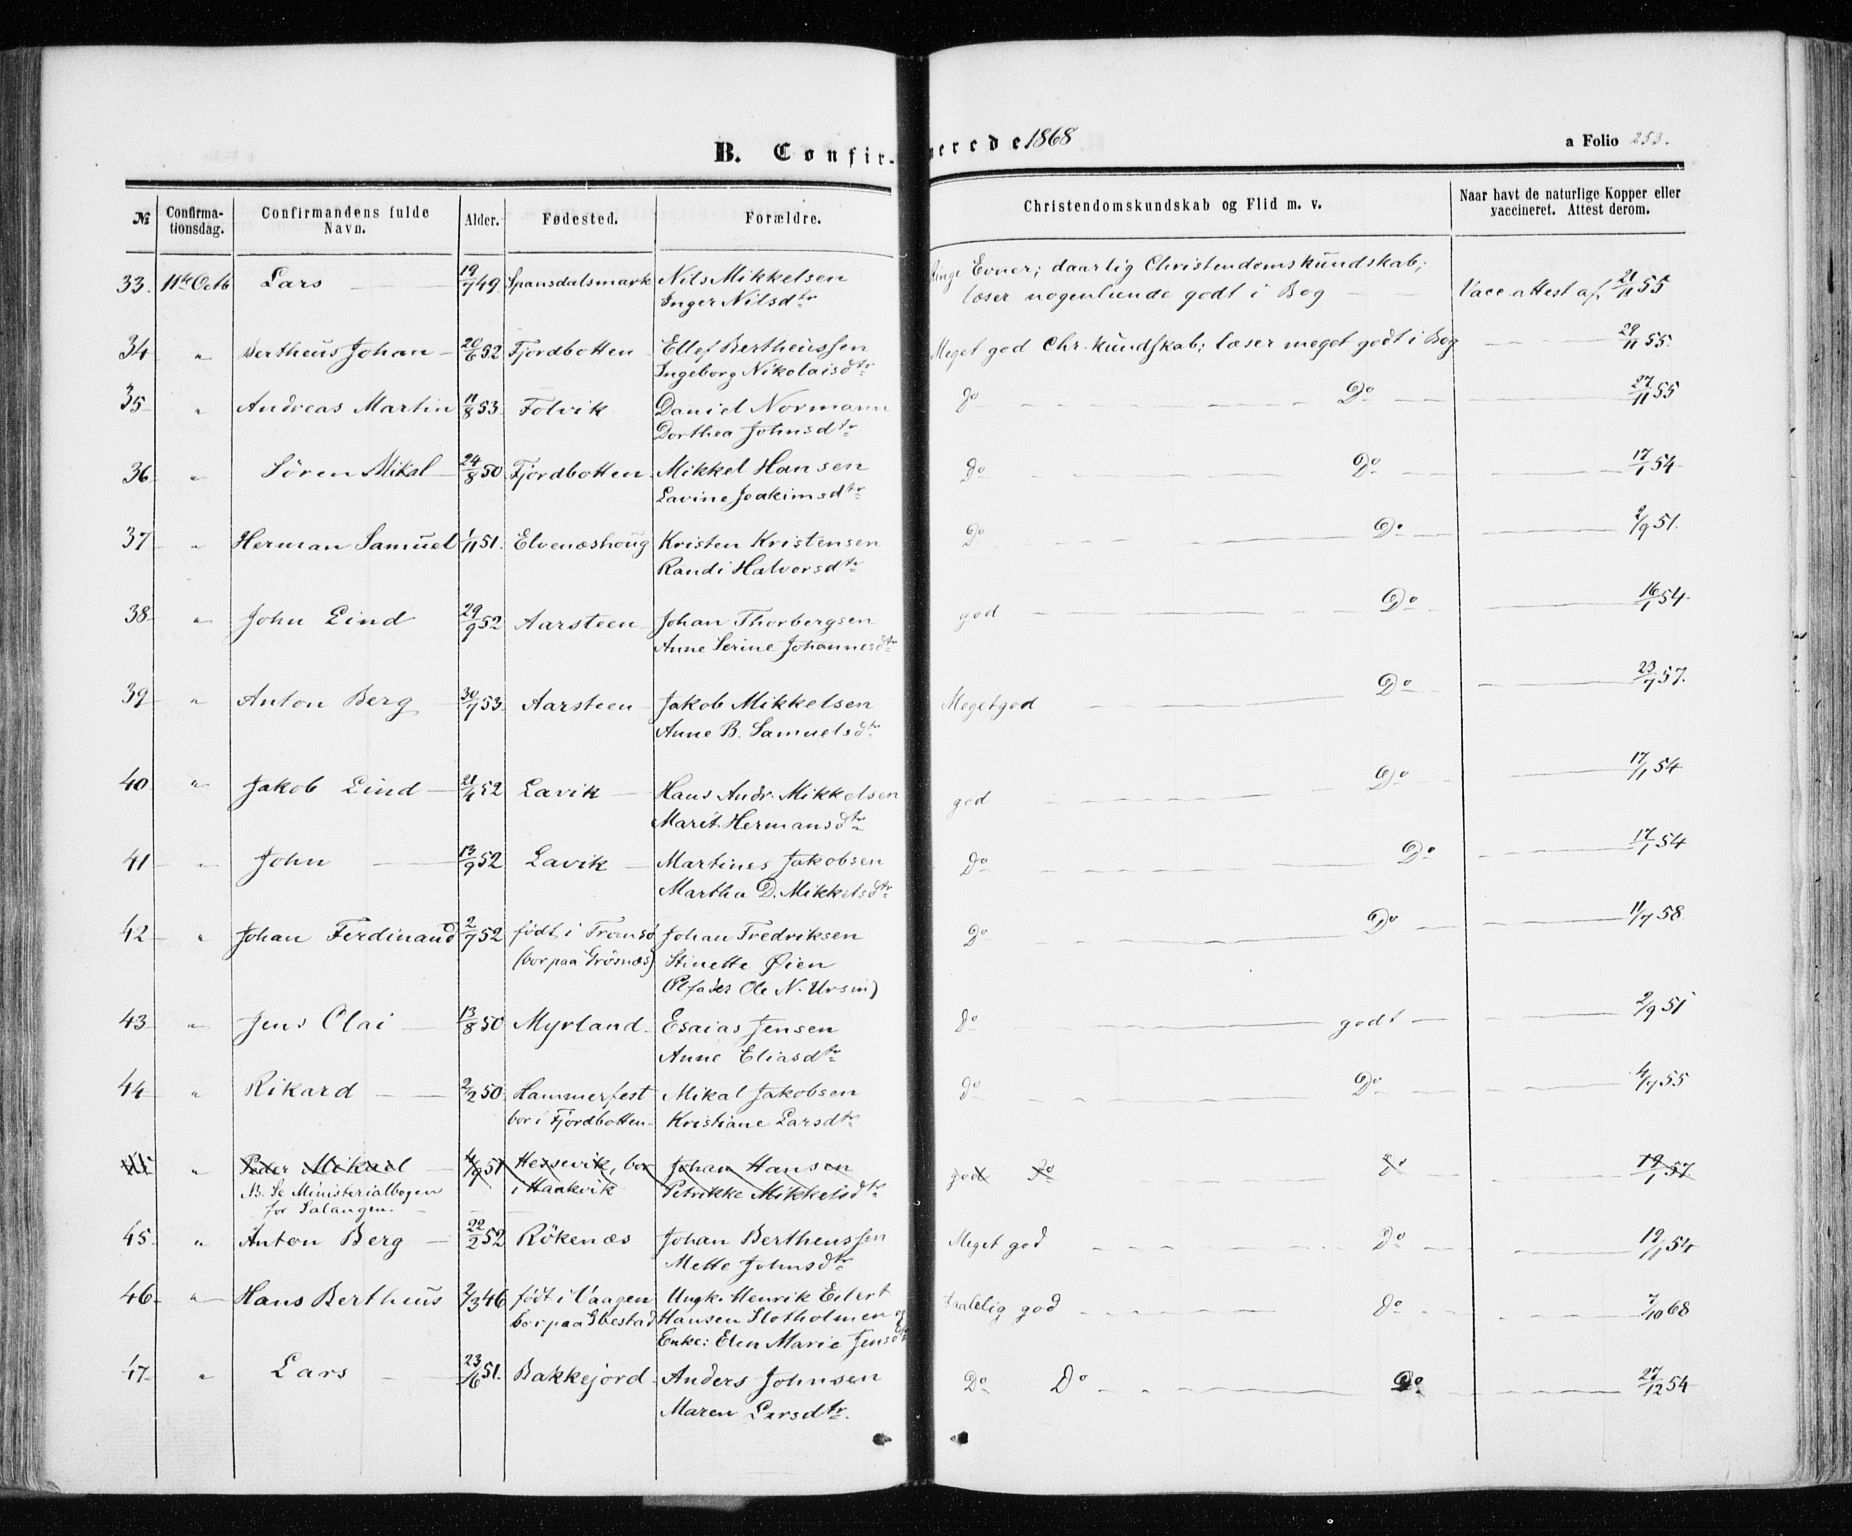 B. Confir-
merede 1868
a Folio 253.
№ Confirma-tionsdag. Confirmandens fulde Navn. Alder. Fødested. Forældre. Christendomskundskab og Flid m. v. Naar havt de naturlige Kopper eller vaccineret. Attest derom.
33. 11te Octb Lars 19/7 49. Spansdalsmark Nils Mikkelsen Ringe Evner; daarlig Christendomskundskab;
Inger Nilsdtr læser nogenlunde godt i Bog Vacc. attest af 21/11 55
34 " Bertheus Johan 20/6 52 Fjordbotten Ellef Bertheussen Meget god Chr. kundskab; læser meget godt i Bog 29/11 55.
Ingeborg Nikolaisdtr
35 " Andreas Martin 11/8 53. Folvik Daniel Normann do Do 27/11 55
Dorthea Johnsdtr
36 " Sören Mikal 24/8 50 Fjordbotten Mikkel Hansen Do Do 17/1 54
Lavine Joakimsdtr
37 " Herman Samuel 1/11 51. Elvenæshoug Kristen Kristensen Do Do 2/9 51.
Randi Halvorsdtr
38 " John Lind 29/9 52 Aarsteen Johan Thorbergsen god Do 16/1 54
Anne Serine Johannesdtr
39 " Anton Berg 30/7 53. Aarsteen Jakob Mikkelsen Meget god Do 23/7 57.
Anne B. Samuelsdtr
40 " Jakob Lind 21/4 52 Lavik Hans Andr. Mikkelsen god Do 17/1 54
Marit Hermansdtr
41 " John 13/9 52 Lavik Martines Jakobsen Do Do 17/1 54
Martha D. Mikkelsdtr
42 " Johan Ferdinand 2/7 52 född i Tromsö Johan Fredriksen Do Do 11/7 58
(bor paa Grösnæs) Stinette Øien
(Plfader Ole N. Ursin)
43 " Jens Olai 13/8 50 Myrland Esaias Jensen do godt 2/9 51
Anne Eliasdtr
44 " Rikard 2/2 50. Hammerfest Mikal Jakobsen do Do 4/7 55
bor i Fjordbotten Kristiane Larsdtr
" Peder Mikael 4/9 51 Hessevik, bor Johan Hansen god Do Do 19/1 57
NB. Se Ministerialbogen i Haakvik Petrikke Mikkelsdtr
for Salangen.
45 " Anton Berg 22/2 52 Rökenæs Johan Bertheussen Meget god Do 19/1 54
Mette Johnsdtr
46 " Hans Bertheus 2/3 46 född i Vaagen Ungk. Henrik Eilert taalelig god do 7/10 68
bor paa Ibestad Hansen Slotholmen og
Enke: Elen Marie Jensdtr
47 " Lars 23/6 51. Bakkejord Anders Johnsen Do Do Do 27/12 54
Maren Larsdtr.